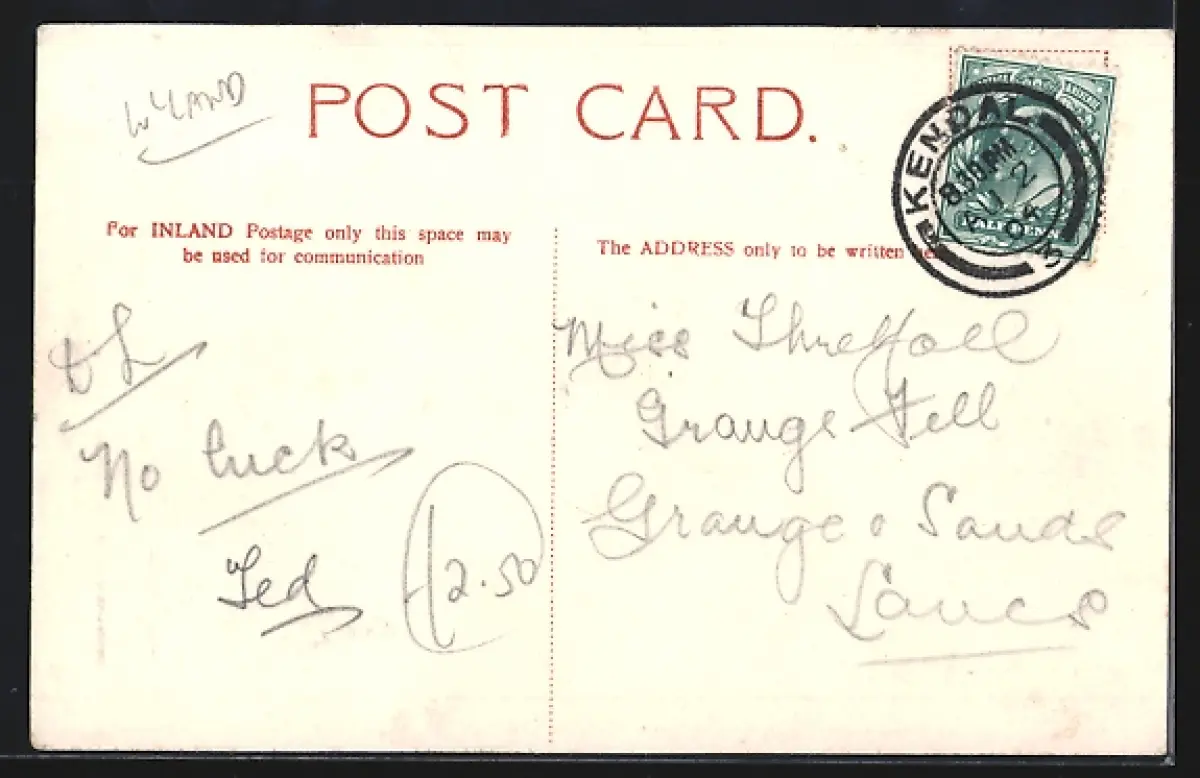 WYLAND
POST CARD.
KENDAL
8.10 PM
2
04
HALFPENNY
For INLAND Postage only this space may
be used for communication
The ADDRESS only to be written here
Miss Threlfall
Grange Fell
Grange o Sands
Lancs
No luck
Ted
12.50